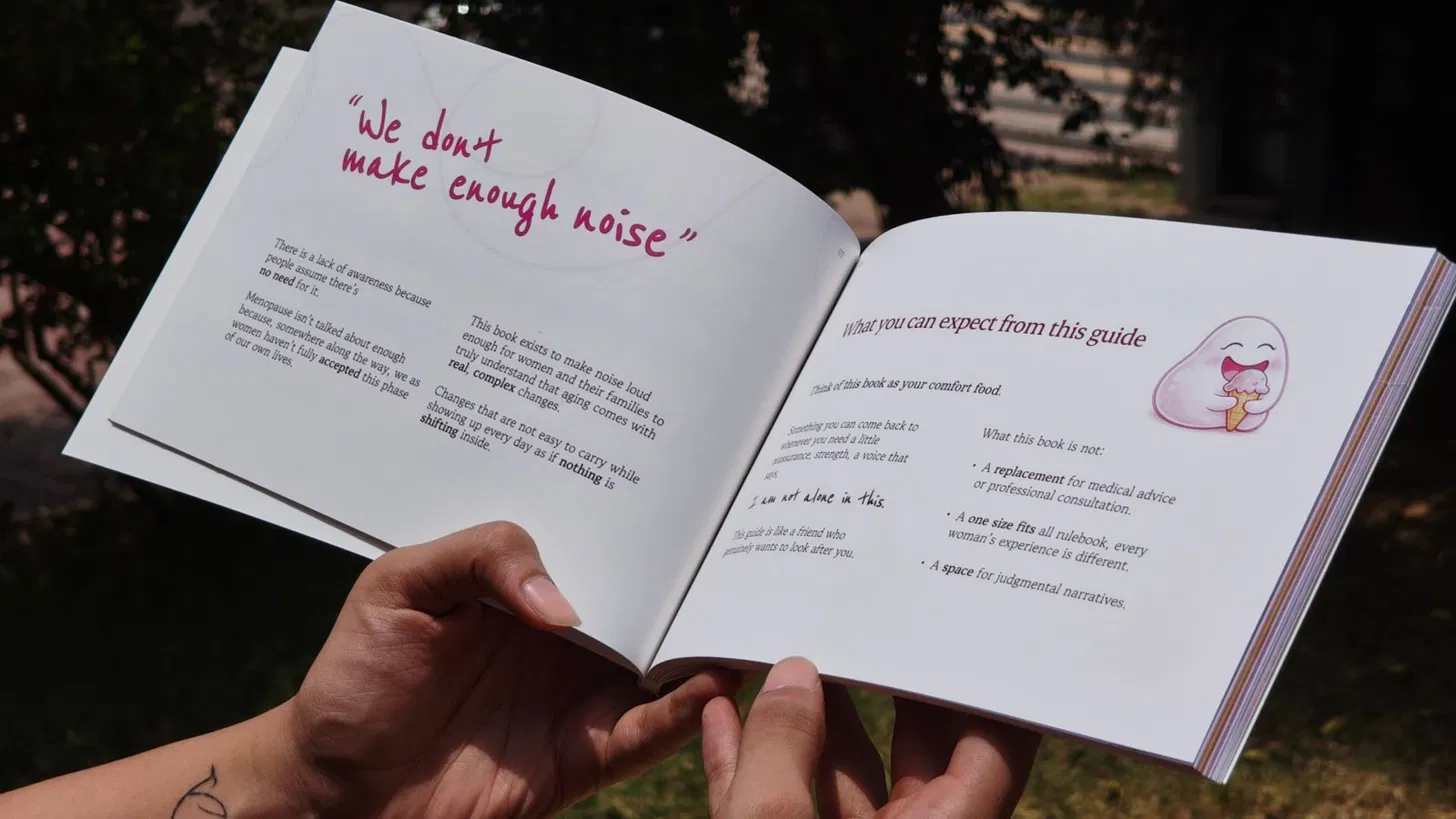 “We don't
make enough noise”
There is a lack of awareness because
people assume there's
no need for it.
Menopause isn't talked about enough
because, somewhere along the way, we as
women haven't fully accepted this phase
of our own lives.
This book exists to make noise loud
enough for women and their families to
truly understand that aging comes with
real, complex changes.
Changes that are not easy to carry while
showing up every day as if nothing is
shifting inside.
What you can expect from this guide
Think of this book as your comfort food.
Something you can come back to
whenever you need a little
reassurance, strength, a voice that
says,
I am not alone in this.
This guide is like a friend who
genuinely wants to look after you.
What this book is not:
• A replacement for medical advice
or professional consultation.
• A one size fits all rulebook, every
woman's experience is different.
• A space for judgmental narratives.